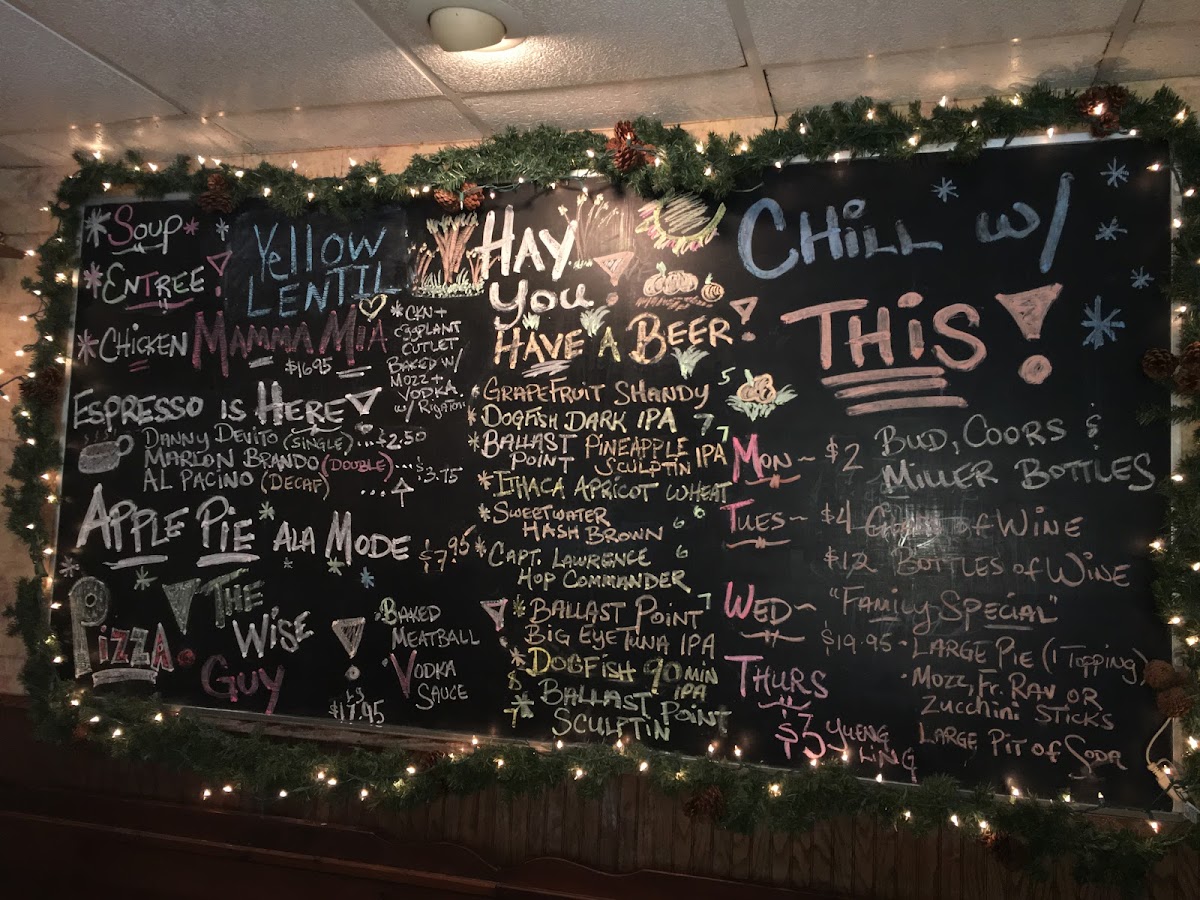 * SOUP *
YELLOW
LENTIL
* ENTREE!
* CHICKEN MAMMA MIA
$16.95
* CKN +
EGGPLANT
CUTLET
BAKED W/
MOZZ +
VODKA
W/ RIGATONI
ESPRESSO IS HERE!
DANNY DEVITO (SINGLE)... $2.50
MARLON BRANDO (DOUBLE)... $3.75
AL PACINO (DECAF) ...
APPLE PIE ALA MODE $7.95
PIZZA.
THE
WISE
GUY
!
$17.95
BAKED
MEATBALL
VODKA
SAUCE
HAY
YOU!
HAVE A BEER!
* GRAPEFRUIT SHANDY 5
* DOGFISH DARK IPA 7
* BALLAST PINEAPPLE IPA 7
POINT SCULPTIN
* ITHACA APRICOT WHEAT
* SWEETWATER 6 6
HASH BROWN
* CAPT. LAWRENCE 6
HOP COMMANDER
* BALLAST POINT 7
BIG EYE TUNA IPA
* DOGFISH 90 MIN
8 IPA
* BALLAST POINT
7 SCULPTIN
CHILL W/
THIS!
MON ~ $2 BUD, COORS &
MILLER BOTTLES
TUES ~ $4 OF WINE
$12 BOTTLES OF WINE
WED ~ "FAMILY SPECIAL"
$19.95 • LARGE PIE (1 TOPPING)
• MOZZ, FR. RAV OR
ZUCCHINI STICKS
LARGE PIT OF SODA
THURS
$3 YUENG
LING